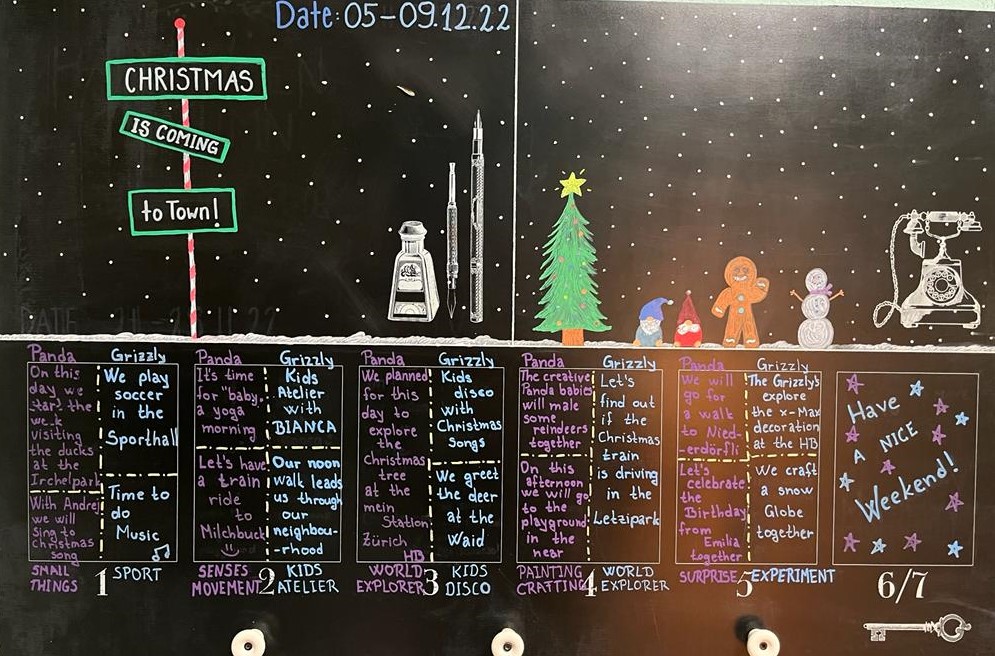 Date: 05-09.12.22
CHRISTMAS
IS COMING
to Town!
Panda
On this
day we
start the
week
visiting
the ducks
at the
Irchelpark
With Andrej
we will
sing to
Christmas
song
SMALL
THINGS
Grizzly
We play
soccer
in the
Sporthall
Time to
do
Music
SPORT
1
Panda
It's time
for "baby"
a yoga
morning
Let's have
a train
ride
to
Milchbuck
SENSES
MOVEMENT
Grizzly
Kids
Atelier
with
BIANCA
Our noon
walk leads
us through
our
neighbou-
-rhood
KIDS
ATELIER
2
Panda
We planned
for this
day to
explore
the
Christmas
tree
at the
mein
Station
Zürich
HB
WORLD
EXPLORER
Grizzly
Kids
disco
With
Christmas
Songs
We greet
the deer
at the
Waid
KIDS
DISCO
3
Panda
The creative
Panda babies
will male
some
reindeers
together
On this
afternoon
we will go
to the
playground
in the
near
PAINTING
CRAFTING
Grizzly
Let's
find out
if the
Christmas
train
is driving
in the
Letzipark
WORLD
EXPLORER
4
Panda
We will
go for
a walk
to Nied-
-erdörfli
Let's
celebrate
the
Birthday
from
Emilia
together
SURPRISE
Grizzly
The Grizzly's
explore
the x-Max
decoration
at the HB
We craft
a snow
Globe
together
EXPERIMENT
5
Have
A NICE
Weekend!
6/7